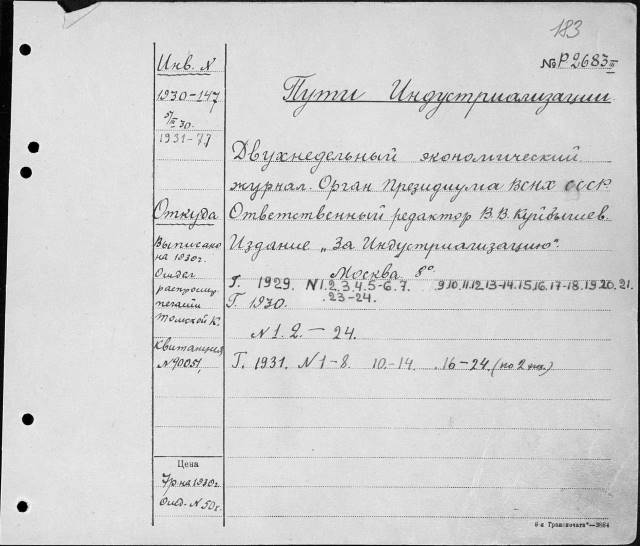 183
№ Р 2683 III
Инв. N
1930-147
5/III 30.
1931-77
Пути Индустриализации
Двухнедельный экономический
журнал. Орган Президиума ВСНХ СССР.
Откуда
Ответственный редактор В.В. Куйбышев.
Выписано
на 1930г.
Издание „За Индустриализацию".
Москва 8°
Отдел
распростр
печати
Томской К.
Г. 1929. N 1.2.3.4.5-6.7. 9.10.11.12.13-14.15.16.17-18.19.20.21.
23-24.
Г. 1930.
N 1. 2. — 24.
Квитанция
N 90051
Г. 1931. N 1-8. 10-14. 16-24. (по 2 экз.)
Цена
7р на 1930г.
N 50к.
6-я Транспечать"—3884